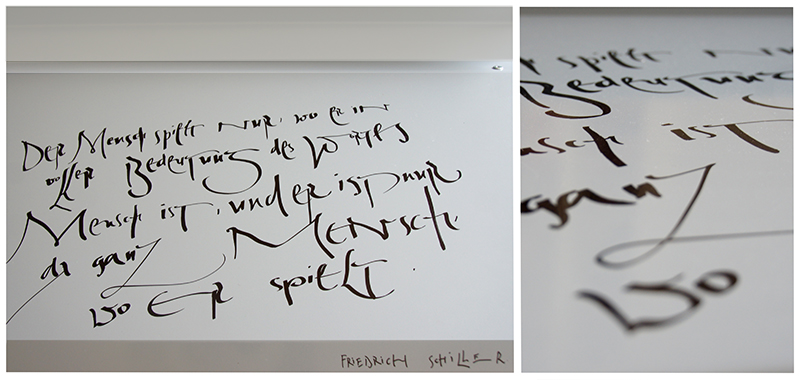 Der Mensch spielt nur, wo er in
voller Bedeutung des Wortes
Mensch ist, und er ist nur
da ganz Mensch,
wo er spielt.
FRIEDRICH SCHILLER
r spielt nur
Bedeutung
ensch ist
ganz
wo